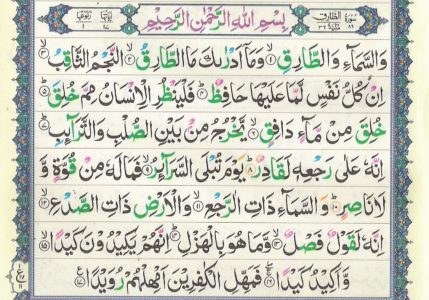 سورة الطارق ٨٦ مكية ٣٦ بسم الله الرحمن الرحيم اياتها ١٧ ركوعها ١
وَالسَّمَآءِ وَالطَّارِقِ ۙ﴿۱﴾ وَمَآ اَدْرٰىكَ مَا الطَّارِقُ ۙ﴿۲﴾ النَّجْمُ الثَّاقِبُ ۙ﴿۳﴾
اِنْ كُلُّ نَفْسٍ لَّمَّا عَلَيْهَا حَافِظٌ ؕ﴿۴﴾ فَلْيَنْظُرِ الْاِنْسَانُ مِمَّ خُلِقَ ؕ﴿۵﴾
خُلِقَ مِنْ مَّآءٍ دَافِقٍ ۙ﴿۶﴾ يَّخْرُجُ مِنْۢ بَيْنِ الصُّلْبِ وَالتَّرَآئِبِ ؕ﴿۷﴾
اِنَّهٗ عَلٰى رَجْعِهٖ لَقَادِرٌ ؕ﴿۸﴾ يَوْمَ تُبْلَى السَّرَآئِرُ ۙ﴿۹﴾ فَمَا لَهٗ مِنْ قُوَّةٍ وَّ
لَا نَاصِرٍ ؕ﴿۱۰﴾ وَالسَّمَآءِ ذَاتِ الرَّجْعِ ۙ﴿۱۱﴾ وَالْاَرْضِ ذَاتِ الصَّدْعِ ۙ﴿۱۲﴾
اِنَّهٗ لَقَوْلٌ فَصْلٌ ۙ﴿۱۳﴾ وَّمَا هُوَ بِالْهَزْلِ ؕ﴿۱۴﴾ اِنَّهُمْ يَكِيْدُوْنَ كَيْدًا ۙ﴿۱۵﴾
وَّاَكِيْدُ كَيْدًا ۚۖ﴿۱۶﴾ فَمَهِّلِ الْكٰفِرِيْنَ اَمْهِلْهُمْ رُوَيْدًا ﴿۱۷﴾